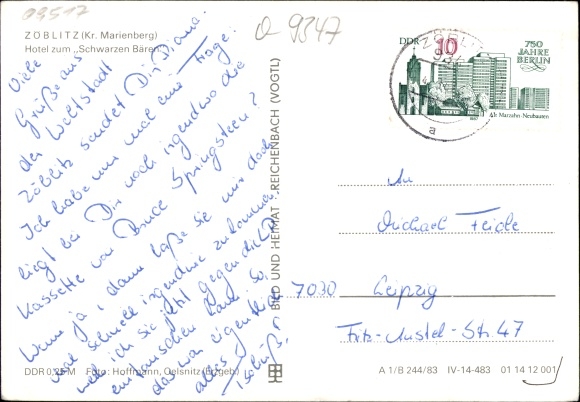 09517
Q 9347
ZÖBLITZ (Kr. Marienberg)
Hotel zum „Schwarzen Bären"
Viele
Grüße aus
der Weltstadt
Zöblitz sendet Dir Diana.
Ich habe nur mal eine Frage.
liegt bei Dir noch irgendwo die
Kassette von Bruce Springsteen?
Wenn ja, dann laße sie mir doch
mal schnell irgendwie zukommen
weil ich sie jetzt gegen die LP
eintauschen kann. So,
das war eigentlich
alles.
Tschüß!
DDR 0,25 M Foto: Hoffmann, Oelsnitz (Erzgeb.)
BILD UND HEIMAT REICHENBACH (VOGTL)
DDR 10
750
JAHRE
BERLIN
Marzahn · Neubauten
ZÖBLITZ
a
An
Michael
7030 Leipzig
Str. 47
A 1/B 244/83 IV-14-483 01 14 12 001